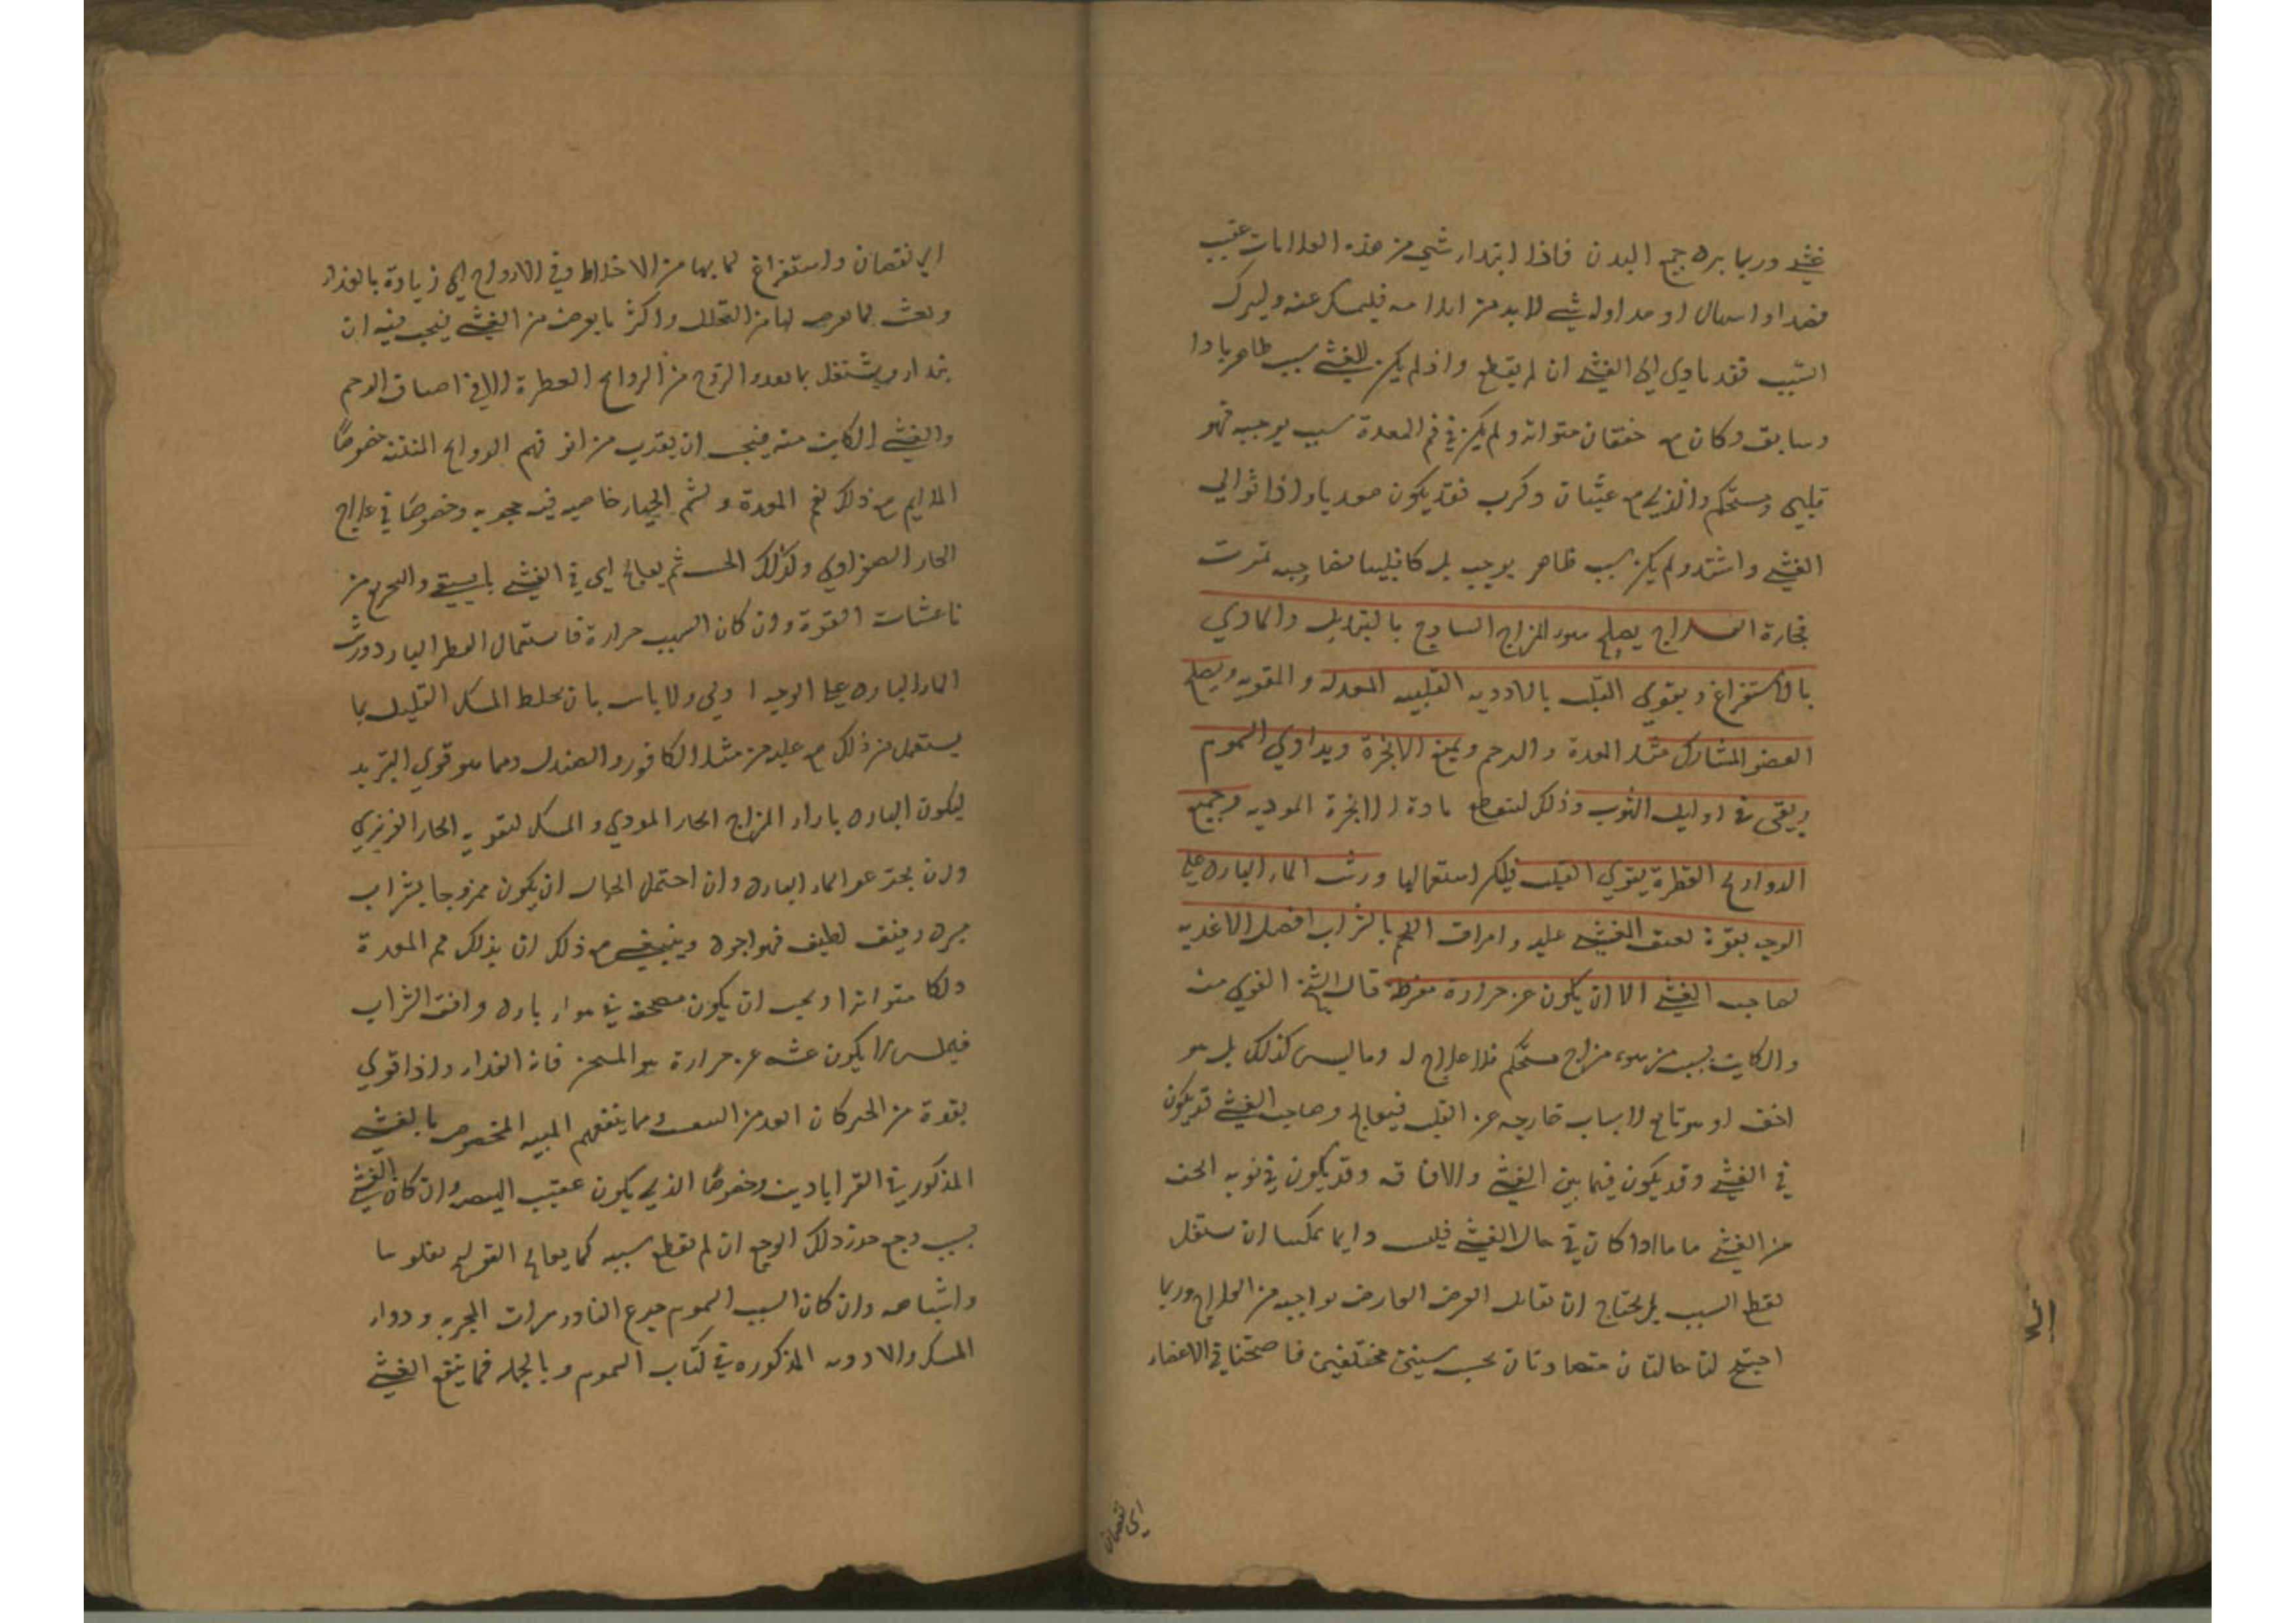 غشي وربما برد جميع البدن فاذا ابتداء شي من هذه العلامات عقيب
فصد او اسهال او مداوله شي لا بد من ايلامه فليمسك عنه وليترك
السبب فقد يادي الي الغشي ان لم يقطع واذ لم يكن للغشي سبب ظاهر بادا
وسابق وكان مع خفقان متواتر ولم يكن في فم المعدة سبب يوجبه فهو
قلبي مستحكم والذي مع غثيان وكرب فقد يكون معديا واذا توالي
الغشي واشتد ولم يكن سبب ظاهر يوجبه بل كا قلبيا فصاحبه تموت
فجاءة العلاج يصلح سوء المزاج الساذج بالتبديل والمادي
بالاستفراغ ويقوي القلب بالادويه القلبيه المعدله والمقويه ويصلح
العضو المشارك مثل المعدة والرحم ويمنع الابخرة ويداوي السموم
ويقي في اوايل النوب وذلك لتقطع مادة الابخرة الموديه وجميع
الروايح العطرة يقوي القلب فليكثر استعمالها ورش الماء البارد علي
الوجه بقوة لعنف المغشي عليه وامراق اللحم بالشراب افضل الاغديه
لصاحب الغشي الا ان يكون عن حرارة مفرطة قال الشيخ القوي منه
والكاين بسبب من سوء مزاج مستحكم فلا علاج له وما ليس كذلك بل هو
اخف او هو تابع لاسباب خارجه عن القلب فيعالج وصاحب الغشي قد يكون
في الغشي وقد يكون فيما بين الغشي والافاقه وقد يكون في نوبه اخف
من الغشي فاما اذا كان في حال الغشي فليس دايما يمكننا ان نشتغل
بقطع السبب بل يحتاج ان نقابل العرض العارض بواجبه من العلاج وربما
اجتمع لنا حالتان متضادتان بحسب سببين مختلفين فاحتجنا في الاعضاء
الي نقصان
الي نقصان واستفراغ لما بها من الاخلاط وفي الارواح الي زيادة بالغذاء
ونعش لما يعرض لها من التحلل واكثر ما يعرض من الغشي فيجب فيه ان
يبداء ويشتغل بما يغدو الروح من الروايح العطرة الا في اختناق الرحم
والغشي الكاين منه فيجب ان يقرب من انوفهم الروايح المنتنه خصوصًا
الملايم مع ذلك لفم المعدة ولشم الخيار خاصيه فيه مجربه وخصوصًا في علاج
الحار الصفراوي وكذلك الخس ثم يعالج اي في الغشي بالسقي والتجريع من
ناعشات القوة وان كان السبب حرارة فاستعمال العطر البارد ورش
الماء البارد علي الوجه اولي ولا باس بان يخلط المسك القليل بما
يستعمل من ذلك مع غلبه من مثل الكافور والصندل ومما هو قوي التبريد
ليكون البارد بازاء المزاج الحار المودي والمسك لتقويه الحار الغريزي
وان يجرعو الماء البارد وان احتمل الحال ان يكون ممزوجا بشراب
مبرد رقيق لطيف فهو اجود وينبغي مع ذلك ان يدلك فم المعدة
دلكا متواترا ويجب ان يكون مضجعه في هواء بارد وافق الشراب
فيمن لا يكون غشيه عن حرارة هو المسخن فانه انفذ واذا قوي
بقوة من الخبز كان ابعد من التعب ومما ينفعهم الميبه المخصوص بالغشي
المذكور في القراباديت وخصوصًا الذي يكون عقيب الهيضه وان كان الغشي
بسبب وجع خدر ذلك الوجع ان لم تقطع سببه كما يعالج القولنج بفلونيا
واشباهه وان كان السبب السموم جرع الفادزهرات المجربه ودواء
المسك والادويه المذكوره في كتاب السموم وبالجمله فما ينفع الغشي